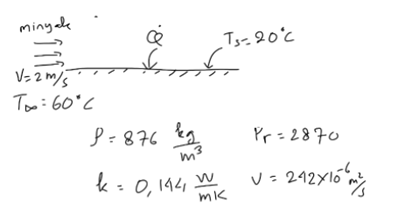 minyak
Q̇
Ts = 20°C
V = 2 m/s
T∞ = 60°C
ρ = 876 kg/m³
Pr = 2870
k = 0,144 W/mK
ν = 242×10⁻⁶ m²/s